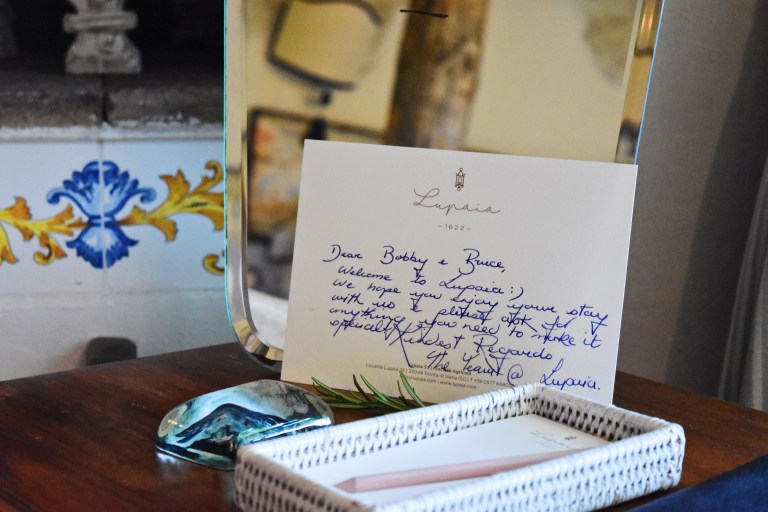 Lupaia
-1622-
Dear Bobby e Bruce,
Welcome to Lupaia :)
We hope you enjoy your stay
with us & please ask for
anything you need to make it
special! Kindest Regards
The Team @ Lupaia.